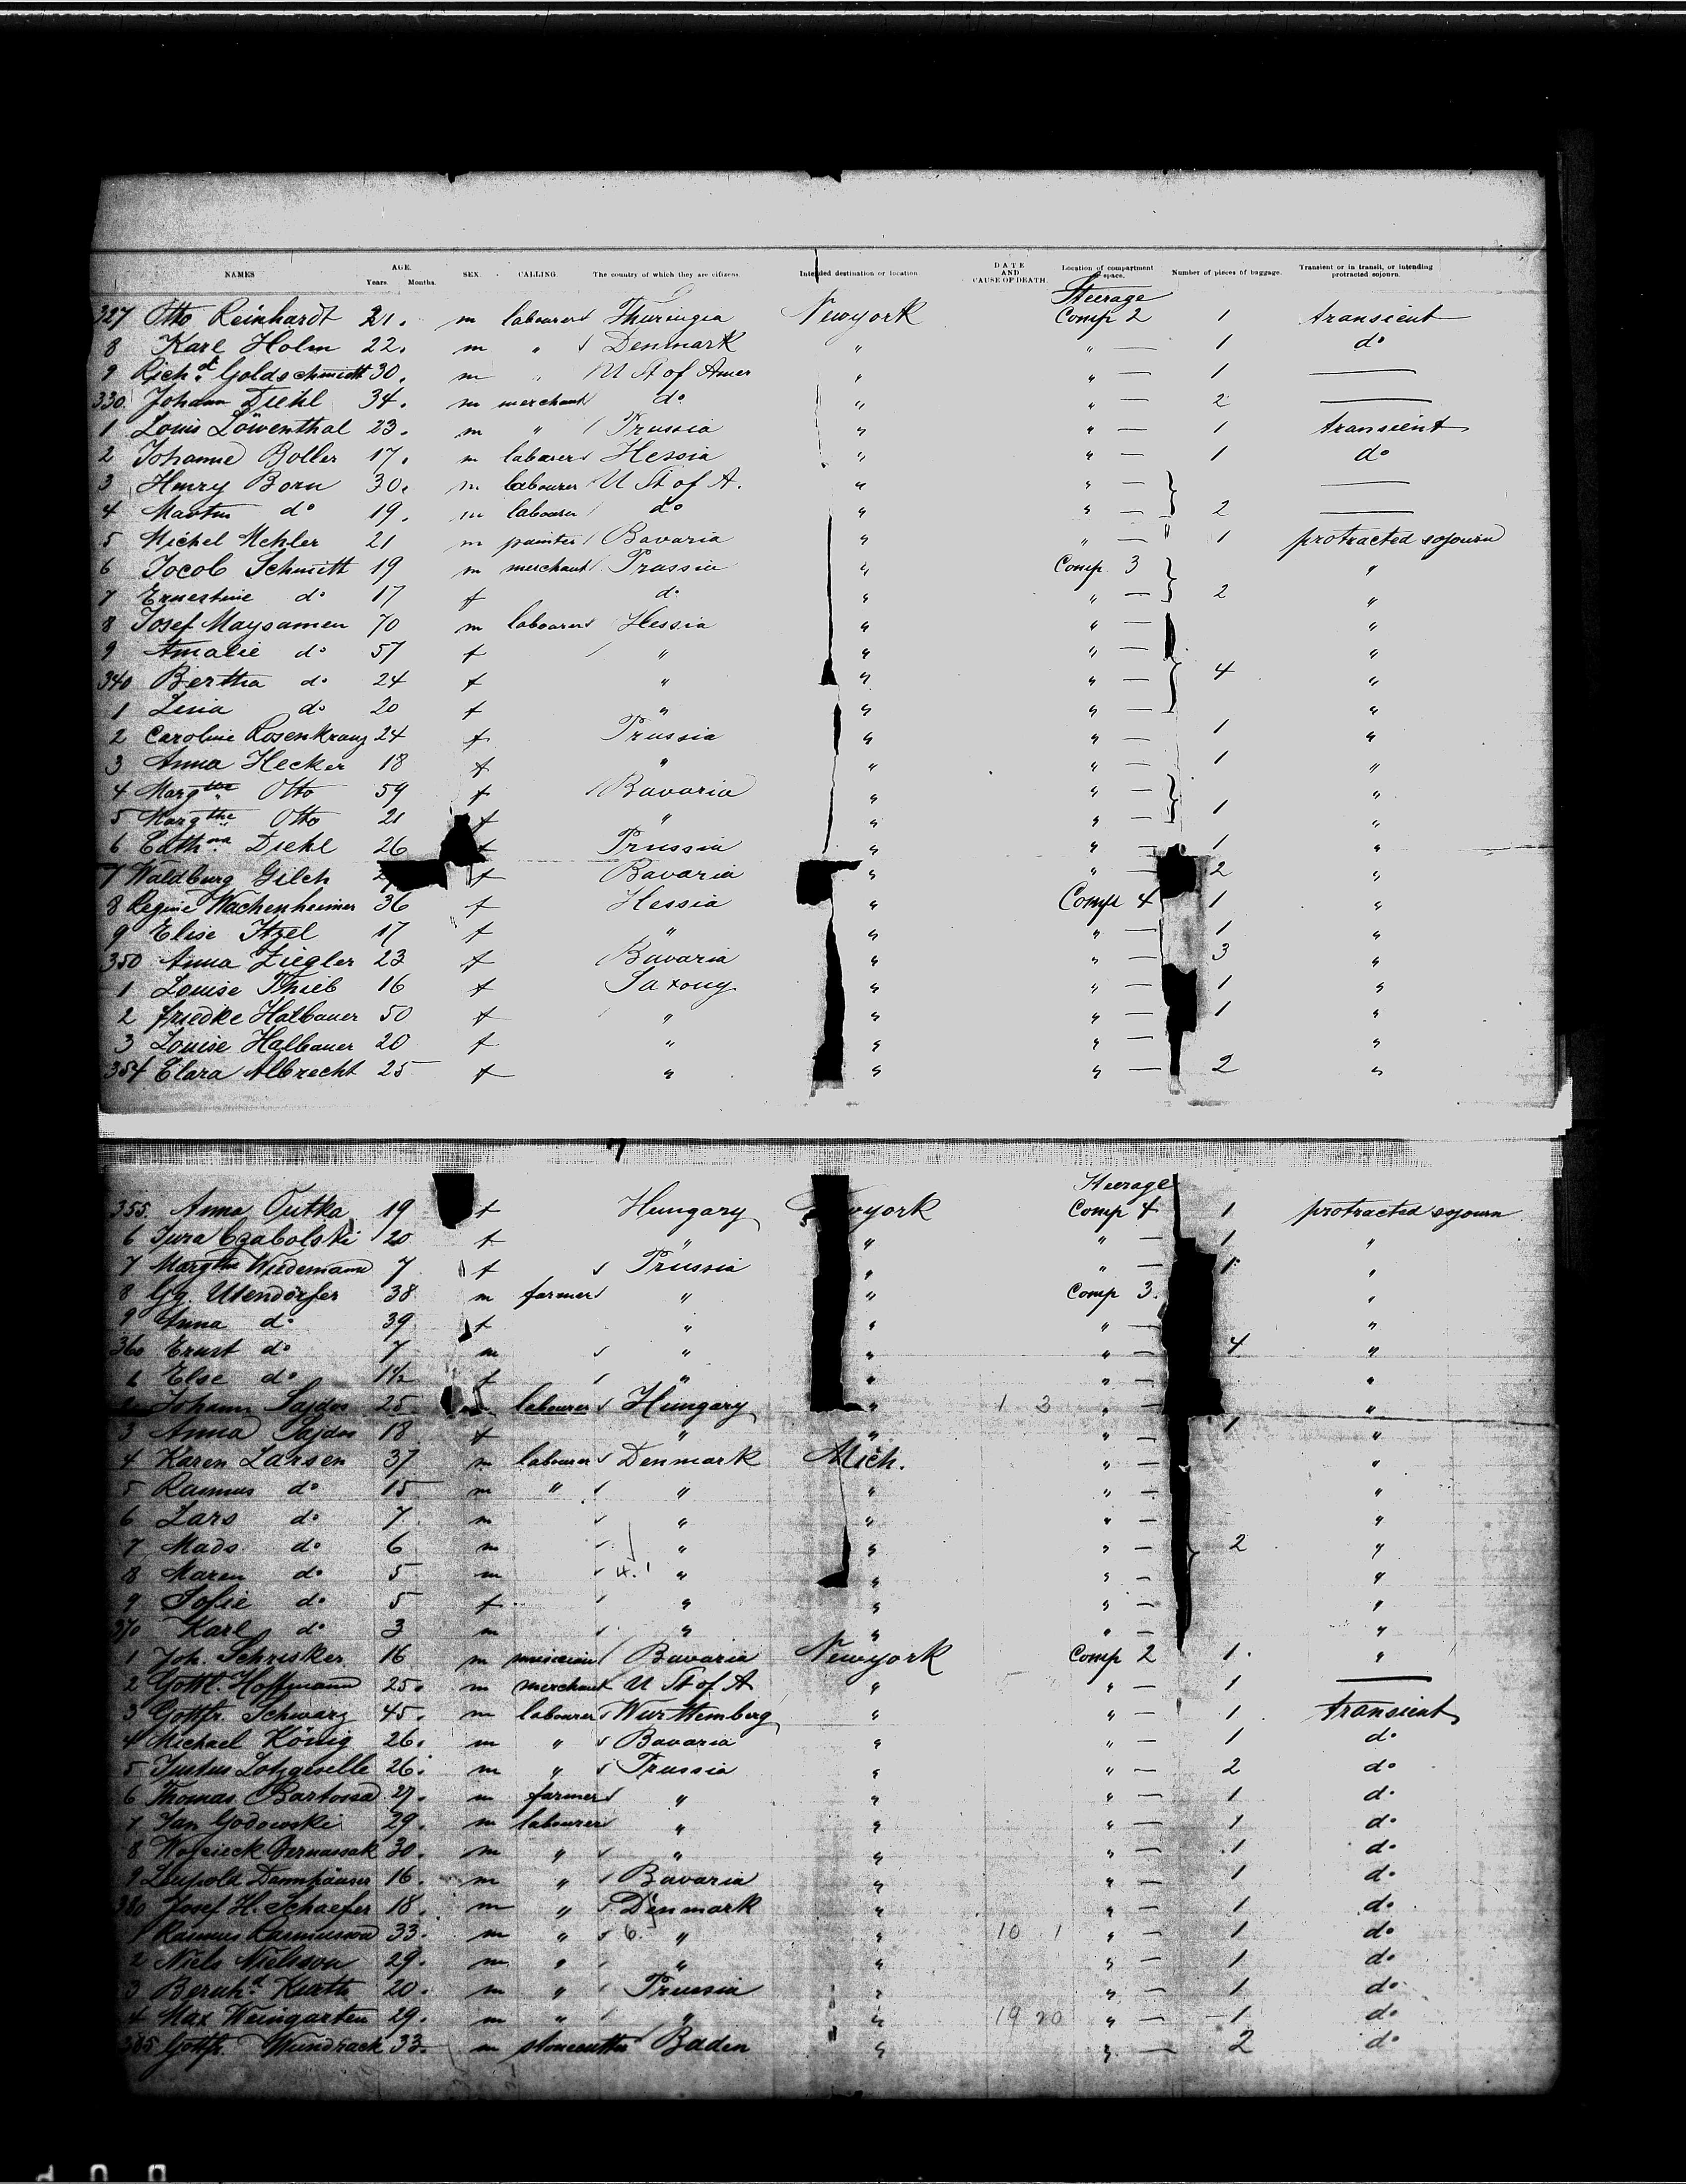 NAMES AGE. Years. Months. SEX. CALLING. The country of which they are citizens. Intended destination or location. DATE AND CAUSE OF DEATH. Location of compartment or space. Number of pieces of baggage. Transient or in transit, or intending protracted sojourn.
Steerage
327 Otto Reinhardt 21. m labourer Thuringia Newyork Comp 2 1 transient
8 Karl Holm 22. m " Denmark " " — 1 do
9 Richd. Goldschmidt 30. m " U St of Amer " " — 1 —
330. Johann Diehl 34. m merchant do " " — 2 —
1 Louis Löwenthal 23. m " Prussia " " — 1 transient
2 Johanne Boller 17. m labourer Hessia " " — 1 do
3 Henry Born 30. m labourer U St of A. " " — —
4 Martin do 19. m labourer do " " — 2 —
5 Michel Mehler 21 m painter Bavaria " " — 1 protracted sojourn
6 Jacob Schmitt 19 m merchant Prussia " Comp 3 "
7 Ernestine do 17 f do " " — 2 "
8 Josef Maysamen 70 m labourer Hessia " " — "
9 Amalie do 57 f " " " — "
340 Bertha do 24 f " " " — 4 "
1 Lina do 20 f " " " — "
2 Caroline Rosenkranz 24 f Prussia " " — 1 "
3 Anna Hecker 18 f " " " — 1 "
4 Margthe Otto 59 f Bavaria " " — "
5 Margthe Otto 21 f " " " — 1 "
6 Cathna Diehl 26 f Prussia " " — 1 "
7 Waldburg Gilch f Bavaria " " — 2 "
8 Regine Wachenheimer 36 f Hessia " Comp 4 1 "
9 Elise Itzel 17 f " " " — 1 "
350 Anna Ziegler 23 f Bavaria " " — 3 "
1 Louise Thieb 16 f Saxony " " — 1 "
2 Friedke Halbauer 50 f " " " — 1 "
3 Louise Halbauer 20 f " " " — "
354 Clara Albrecht 25 f " " " — 2 "
7
Steerage
355. Anna Tutka 19 f Hungary york Comp 4 1 protracted sojourn
6 Jura Czabolski 20 f " " " — 1 "
7 Margthe Wiedemann 7 f Prussia " " — 1 "
8 Gg. Utendörfer 38 m farmer " " Comp 3. "
9 Anna do 39 f " " " — "
360 Ernst do 7 m " " " — 4 "
1 Else do 1½ f " " " — "
Johann Sajdos 25 labourer Hungary " 1 3 " — "
3 Anna Sajdos 18 f " " " — 1 "
4 Karen Larsen 37 m labourer Denmark Mich. " — "
5 Rasmus do 15 m " " " " — "
6 Lars do 7 m " " " — "
7 Mads do 6 m " " " — 2 "
8 Maren do 5 m " " " — "
9 Sofie do 5 f " " " — "
370 Karl do 3 m " " " — "
1 Joh. Schrisker 16 m musician Bavaria Newyork Comp 2 1. "
2 Gottl. Hoffmann 25. m merchant U St of A " " — 1 —
3 Gottfr. Schwarz 45. m labourer Wurttemberg " " — 1 transient
4 Michael König 26. m " Bavaria " " — 1 do
5 Justus Lotzgeselle 26. m " Prussia " " — 2 do
6 Thomas Bartossa 27. m farmer " " " — 1 do
7 Jan Godowski 29. m labourer " " " — 1 do
8 Wojcieck 30. m " " " " — 1 do
9 Leupold Dannhäuser 16. m " Bavaria " " — 1 do
380 Josef H. Schaefer 18. m " Denmark " " — 1 do
1 Rasmus Rasmussen 33. m " 6. " " 10 1 " — 1 do
2 Niels Nielsson 29. m " " " " — 1 do
3 Bernhd. Kurth 20. m " Prussia " " — 1 do
4 Max Weingarten 29. m " " " 19 20 " — 1 do
385 Gottfr. Wundrack 33. m stonecutter Baden " " — 2 do